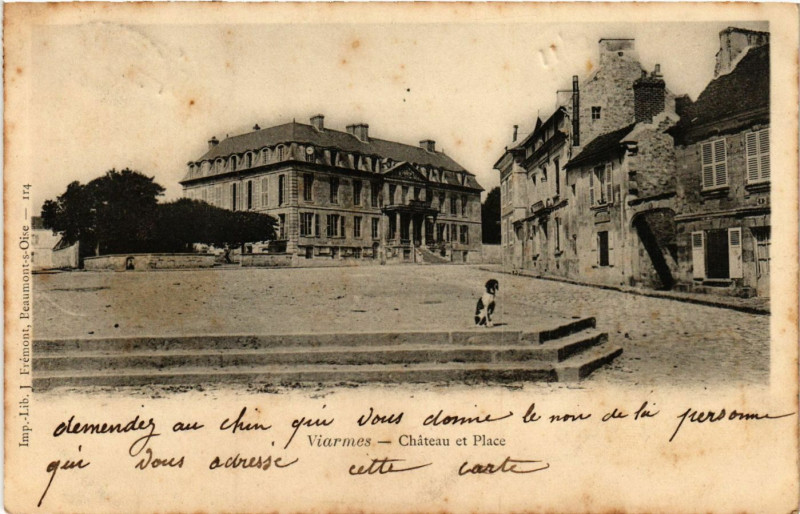 Imp.-Lib. J. Frémont, Beaumont-s-Oise — 114
demendez au chin qui Vous donne le non de la personne
Viarmes — Château et Place
qui Vous adresse cette carte